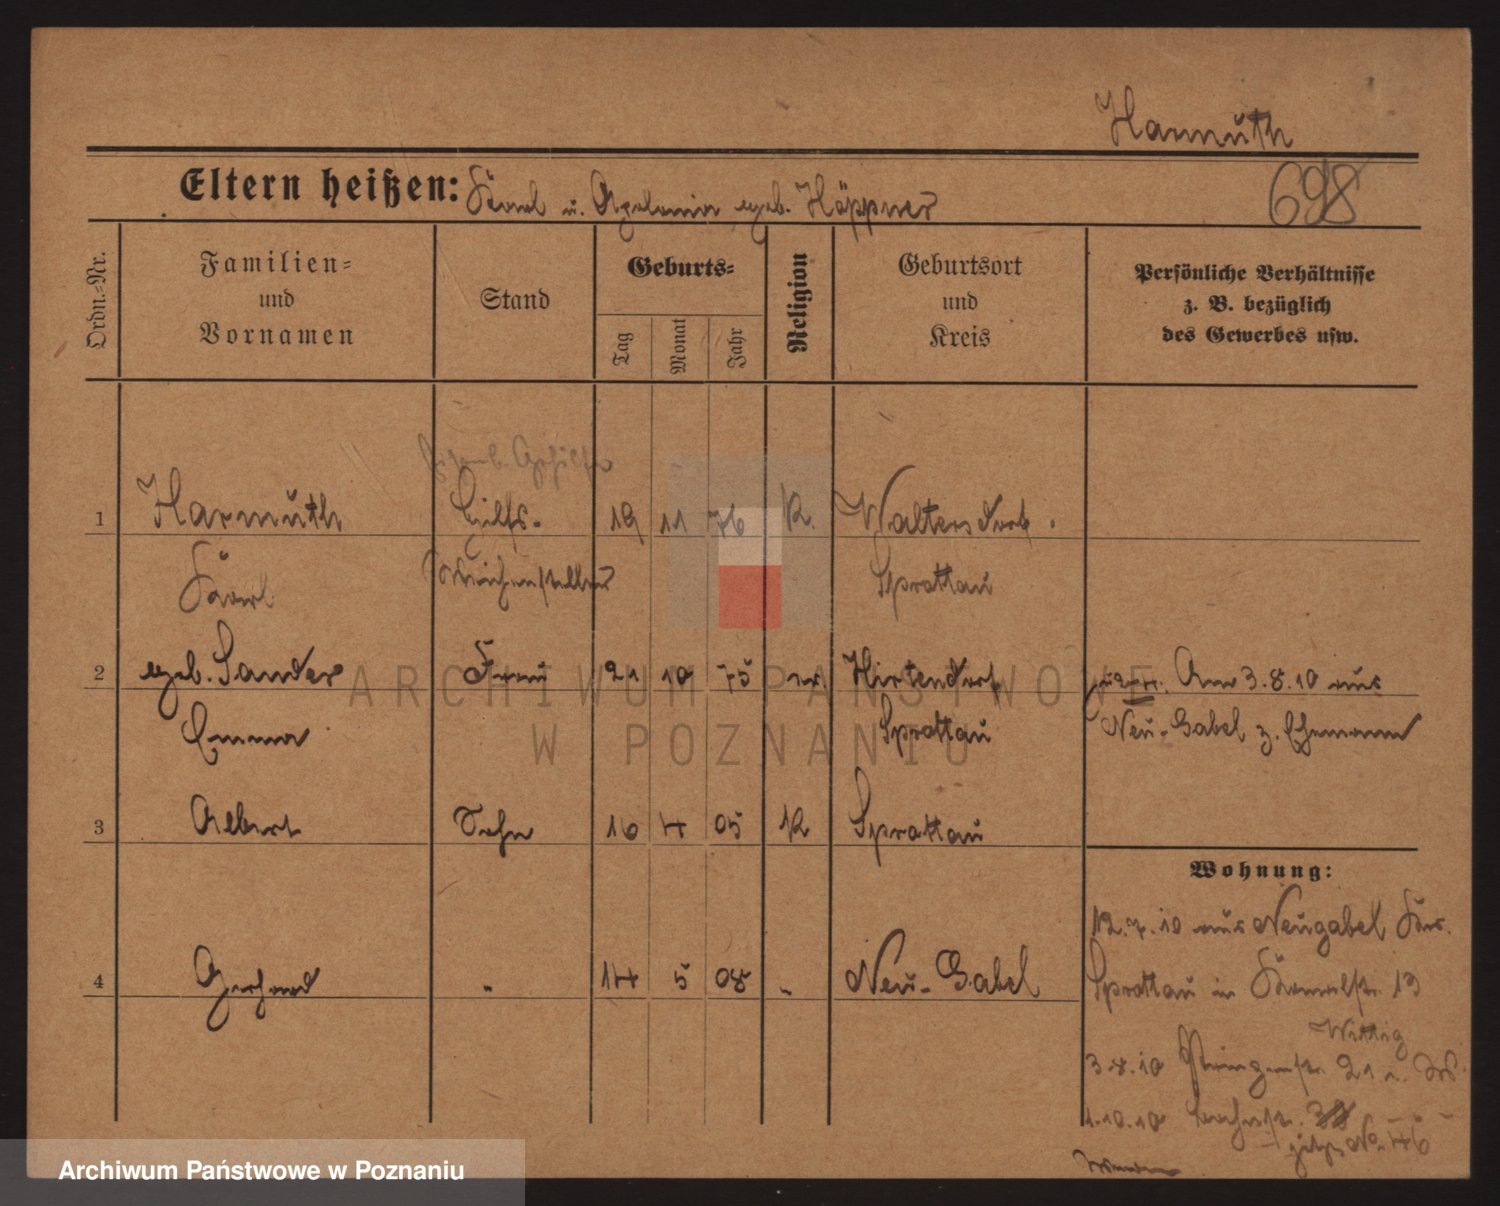 Harmuth
Eltern heißen: Karl u. Apolonia geb. Höppner
698
Ordn.-Nr.
Familien-
und
Vornamen
Stand
Geburts-
Tag
Monat
Jahr
Religion
Geburtsort
und
Kreis
Persönliche Verhältnisse
z. B. bezüglich
des Gewerbes usw.
1 Harmuth Hilfs- 19 11 76 K. Waltersdorf.
Karl Weichensteller Sprottau
2 geb. Sander Frau 21 10 75 ev. Hirtendorf zugez. Am 3.8.10 aus
Emma Sprottau Neu-Gabel z. Ehemann
3 Albert Sohn 16 4 05 K Sprottau
Wohnung:
12.7.10 aus Neugabel Krs.
4 Gerhard " 14 5 08 " Neu-Gabel
Sprottau in Kanalstr. 13
Wittig
3.8.10 Prinzenstr. 21
1.10.10
jetzt No 46
ARCHIWUM PAŃSTWOWE
W POZNANIU
Archiwum Państwowe w Poznaniu